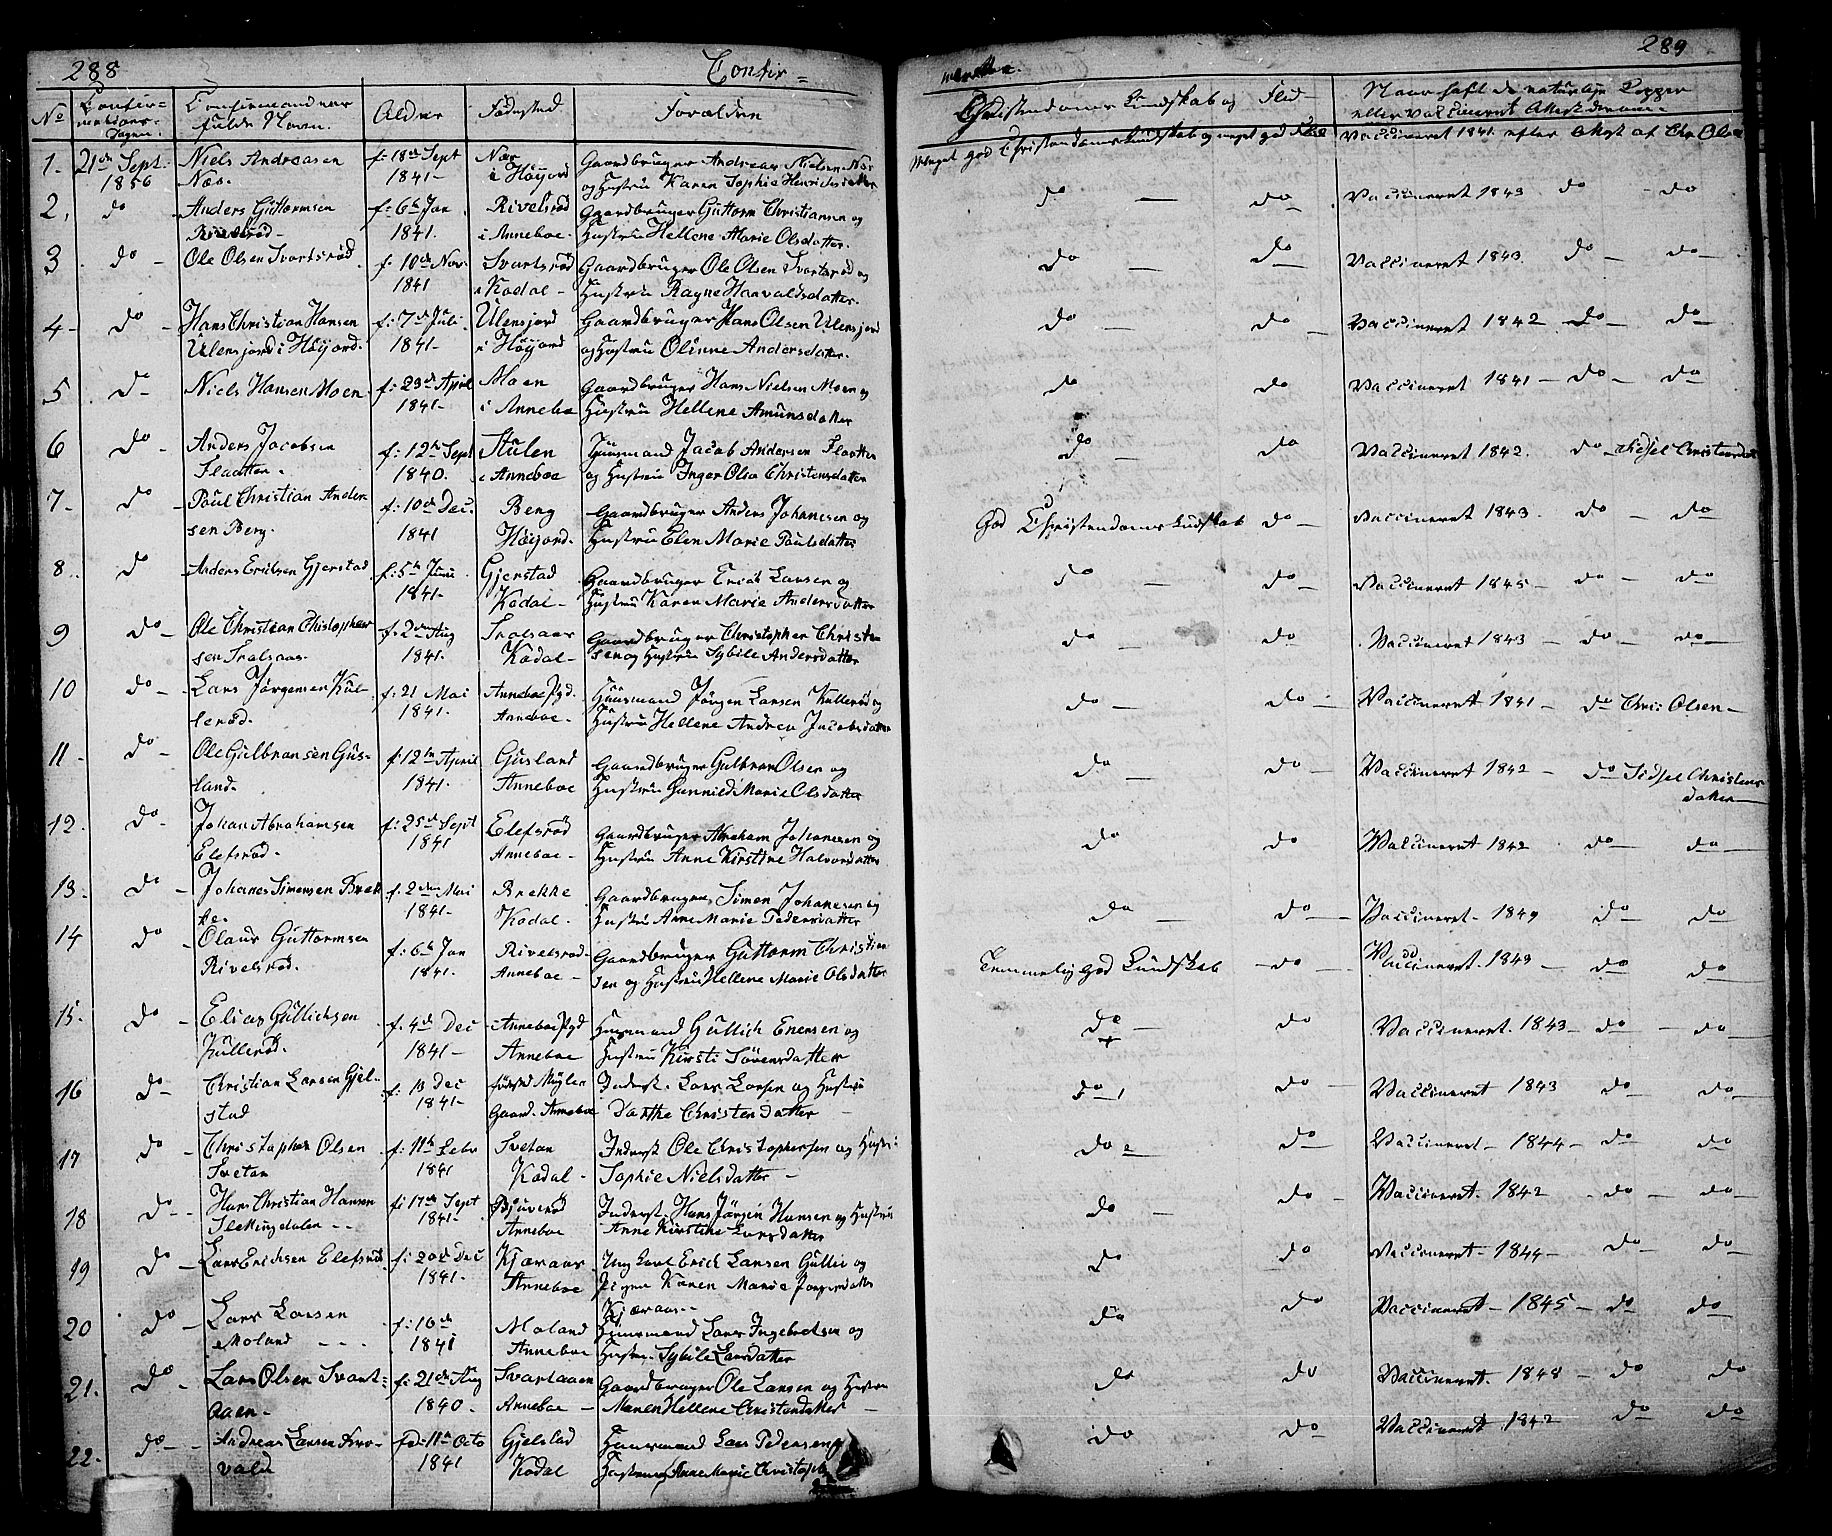 288
Confir=
No
Confir-
mations-
Dagen.
Confirmandernes
fulde Navn.
Alder
Fødested
Forældre
1.
21de Sept.
1856
Niels Andreasen
Næs.
f: 18de Sept
1841-
Næs
i Höijord
Gaardbruger Andreas Nielsen Næs
og Hustru Karen Sophie Henriksdatter
2.
do
Anders Guttormsen
Rivelsrød-
f: 6te Jan
1841.
Rivelsrød
i Anneboe-
Gaardbruger Guttorm Christiansen og
Hustru Hellene Marie Olsdatter.
3
do -
Ole Olsen Svartsrød
f: 10de Nov.
1841
Svartsrød
i Kodal-
Gaardbruger Ole Olsen Svartsrød og
Hustru Ragne Harvaldsdatter.
4-
do -
Hans Christian Hansen
Ulensjord i Höijord.
f: 7de Juli
1841-
Ulensjord
i Höijord
Gaardbruger Hans Olsen Ulensjord
og Hustru Olinne Andersdatter.
5
do-
Niels Hansen Moen
f: 23de April
1841-
Moen
i Anneboe
Gaardbruger Hans Nielsen Moen og
Hustru Hellene Amunsdatter
6
do-
Anders Jacobsen
Flaatten-
f: 12te Sept
1840.
Stulen
i Anneboe
Huusmand Jacob Andersen Flaatten
og Hustru Inger Olea Christensdatter
7-
do
Poul Christian Ander-
sen Berg.
f: 10de Dec.
1841
Berg
Höijord.
Gaardbruger Anders Johanesen og
Hustru Elen Marie Poulsdatter
8.
do
Anders Eriksen Gjerstad
f: 5te Juni
1841-
Gjerstad
Kodal-
Gaardbruger Erick Larsen og
Hustru Karen Marie Andersdatter
9
do-
Ole Christian Chistopher
sen Tralsaas.
f: 2den Aug
1841.
Tralsaas
Kodal-
Gaardbruger Christopher Christen
sen og Hustru Sybile Andersdatter
10
do-
Lars Jørgensen Kul-
lerød-
f: 21 Mai
1841-
Anneboe Pgd.
Anneboe-
Huusmand Jörgen Larsen Kullerød og
Hustru Hellene Andrea Jacobsdatter
11-
do-
Ole Gulbransen Gus-
land-
f: 12te April
1841-
Gusland
Anneboe
Gaardbruger Gulbran Olsen og
Hustru Gunnild Marie Olsdatter
12.
do-
Johan Abrahamsen
Elefsrød-
f: 25de Sept
1841
Elefsrød
Anneboe-
Gaardbruger Abraham Johanesen og
Hustru Anne Kirstine Halvorsdatter
13-
do -
Johanes Simensen Brek
ke-
f: 2den Mai
1841-
Brekke
Kodal.
Gaardbruger Simen Johanesen og
Hustru Anne Marie Pedersdatter
14
do -
Olaus Guttormsen
Rivelsrød.
f: 6te Jan
1841-
Rivelsrød-
Anneboe-
Gaardbruger Guttorm Christian
sen og Hustru Hellene Marie Olsdatter
15.
do -
Elias Gullichsen
Kullerød.
f. 4de Dec
1841-
Anneboe Pgd
Anneboe
Huusmand Gullich Enersen og
Hustru Kirsti Sörensdatter
16
do-
Christian Larsen Gjel-
stad
f: 13 Dec
1841-
Fødested Mylen
Gaard. Anneboe
Inderst. Lars Larsen og Hustru
Dorthe Christensdatter
17
do -
Christopher Olsen
Sveten
f: 11te Febr
1841
Sveten
Kodal-
Inderst Ole Christophersen og Hustru
Sophie Nielsdatter -
18
do--
Hans Christian Hansen
f: 17de Sept
1841-
Bjuverød
Anneboe
Inderst. Hans Jörgin Hansen og Hustru
Anne Kirstine Larsdatter
19
do -
Lars Erichsen Elefsrød
f: 20de Dec
1841.
Kjæraas-
Anneboe
Ung Karl Erick Larsen Gulliv og
Pigen Karen Marie Jørgensdatter
Kjæraas--
20
do -
Lars Larsen
Moland
f: 10de
1841
Moland
Anneboe
Huusmand Lars Ingebretsen og
Hustru Sybile Larsdatter
21.
do -
Lars Olsen Svart-
aaen-
f: 21de Aug
1840-
Svartaaen
Anneboe-
Gaardbruger Ole Larsen og Hustru
Maren Hellene Christensdatter
22.
do--
Andreas Larsen
vald
fd: 11te Octo
1841
Gjelstad
Kodal
Huusmand Lars Pedersen og
Hustru Anne Marie Christoph
289
Christendoms Kundskab og Flid-
Naar haft de naturlige Kopper
eller Vaccineret Attest derom-
Meget god Christendoms Kundskab og meget god Flid
Vaccineret 1841 efter Attest af Chr Olsen
do - do - Vaccineret 1843 do - do
do - do - Vaccineret 1843. do - do-
do - do - Vaccineret 1842 - do - do-
do do Vaccineret 1841- do - do
do - do Vaccineret 1842. do Sidsel Christensdat
God Christendoms Kundskab do - Vaccineret 1843. do - do
do - do - Vaccineret 1845- do - do
do - do - Vaccineret 1843- do - do-
do - do - Vaccineret 1841- do Chris Olsen-
do - do - Vaccineret 1842 - do Sidsel Christens
datter
do do Vaccineret 1842 do- do-
do - do- Vaccineret- 1849 do do
Temmelig god Kundskab -do- Vaccineret. 1849- do do
do - do Vaccineret. 1843- do - do
do do - Vaccineret 1843 do - do-
do do - Vaccineret- 1844- do - do
do - do - Vaccineret. 1842 do - do-
do do Vaccineret- 1844- do do-
do do Vaccineret- 1845- do do
do do Vaccineret- 1848- do do
do do Vaccineret 1842 do do